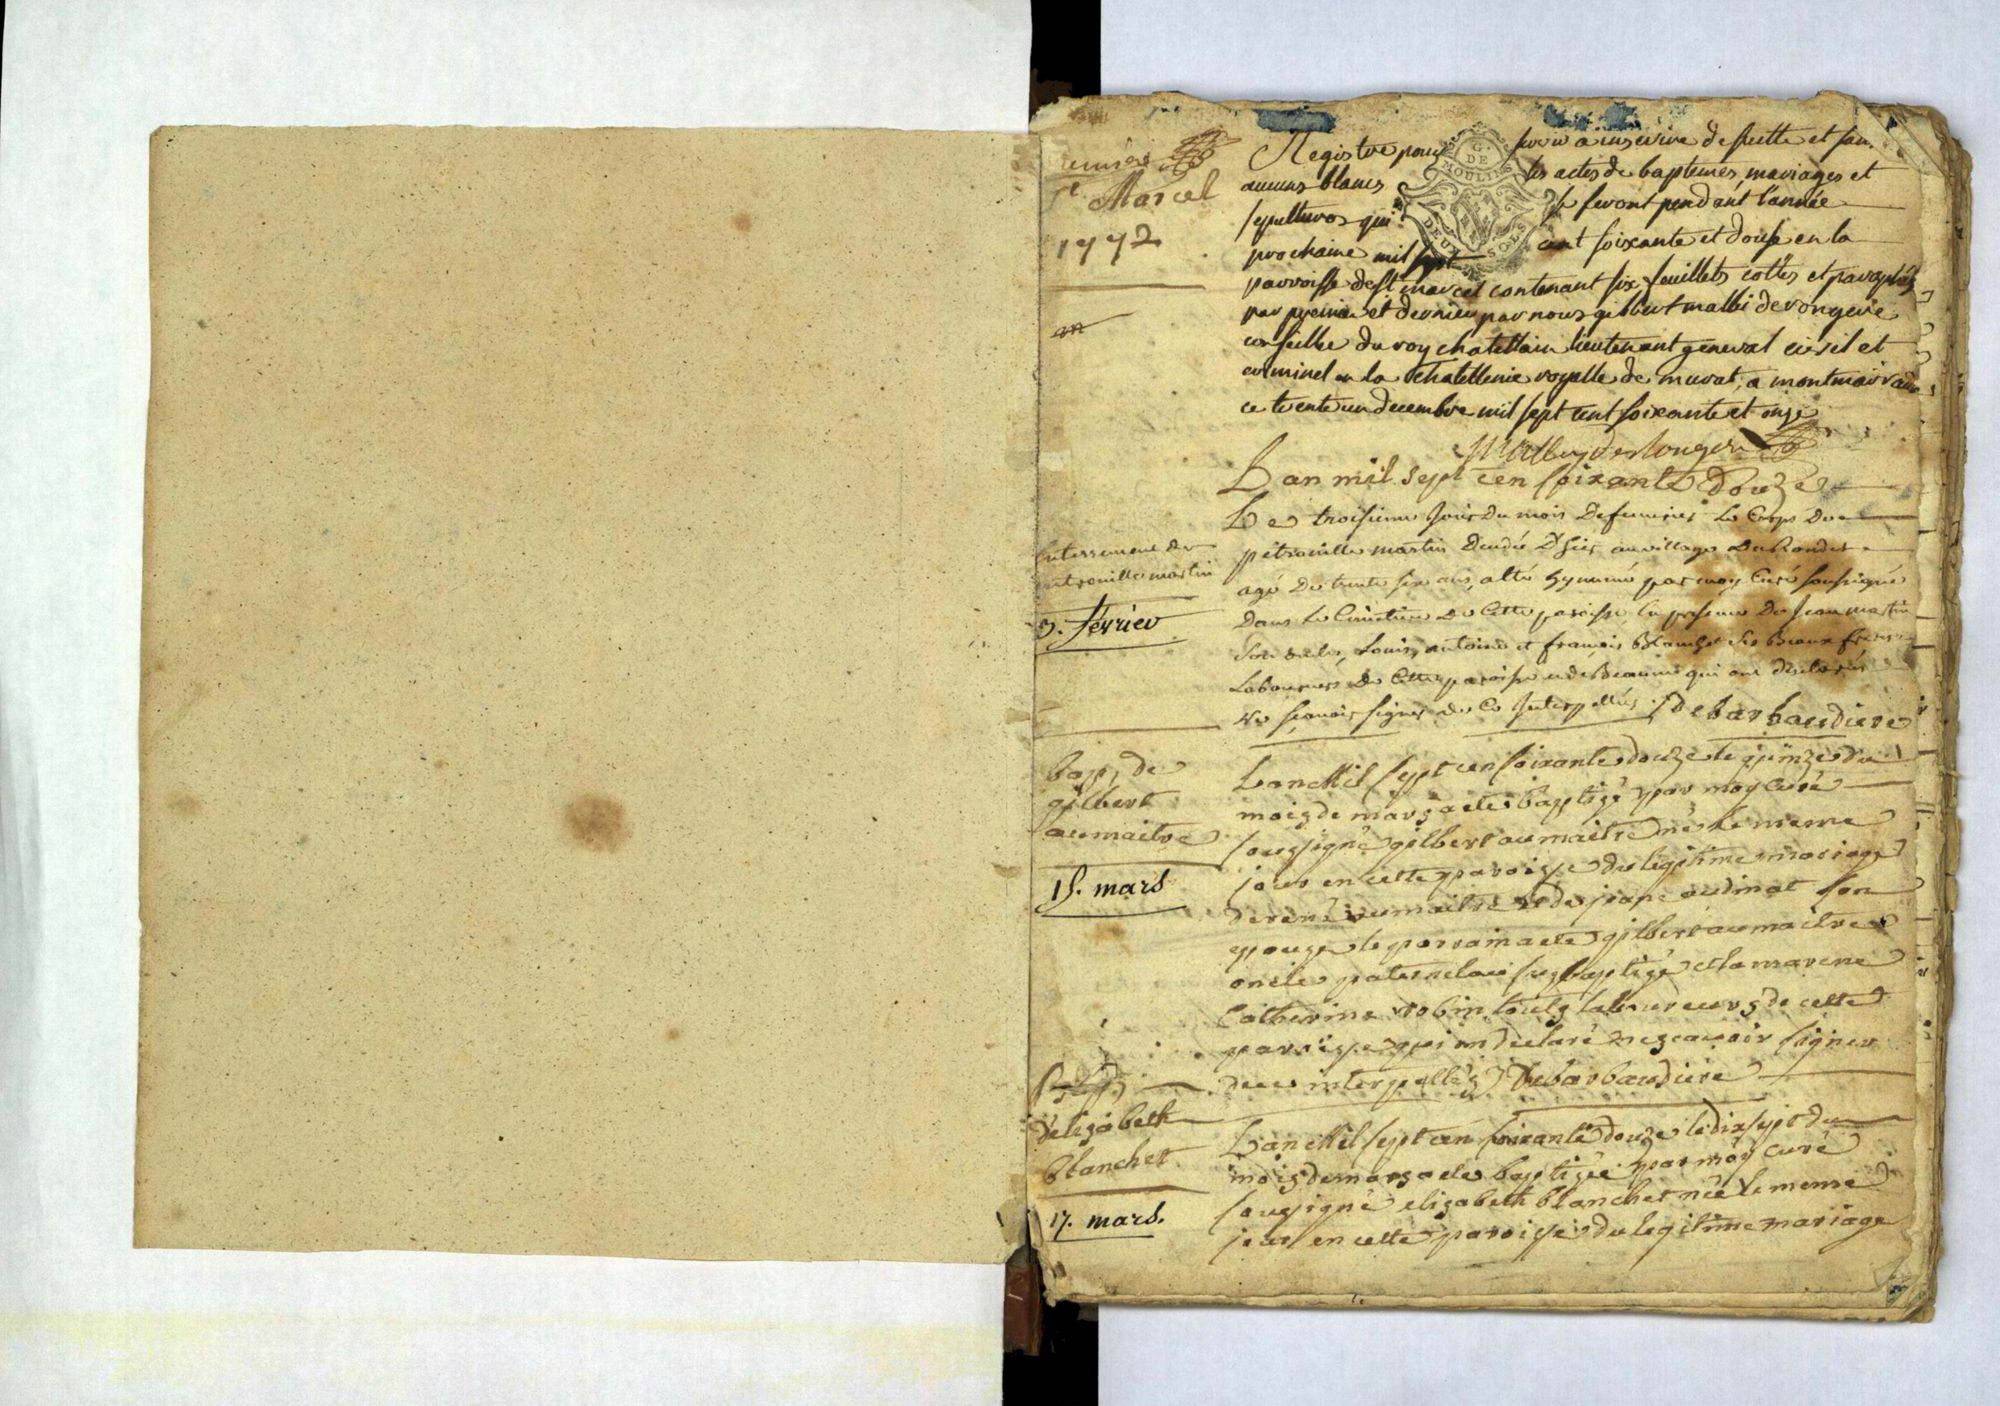 premiere
St Marcel
1772
Registre pour servir a inscrire de suitte et sans
aucuns blancs les actes de baptemes, mariages et
sepultures qui se feront pendant l'année
prochaine mil sept cent soixante et douse en la
parroisse de St marcel contenant six feuillets cottés et paraphés
par premier et dernier par nous gilbert malbi de rongere
conseiller du roy chatellain lieutenant general civil et
criminel en la Chatellenie royalle de murat, a montmarraud
ce trente un decembre mil sept cent soixante et onze
G. DE MOULINS
DEUX SOLS
L'an mil sept cen soixante Douze
Enterrement de
petronille martin
3. février
Le troisieme Jour Du mois De fevrier Le Corps De
petronille martin Decedée D'hier au village Du Rondet
agé De trente six ans, a été Inhumé par moy Curé soussigné
Dans Le Cimetiere De Cette paroisse En presence De Jean martin
Son Louis, antoine et françois Blanchet Ses Beaux freres
Laboureurs De Cette paroisse et de Beaune qui ont Declarés
Ne sçavoir signer De Ce Interpellés Debarbaudiere
bap, de
gilbert
aumaitre
15. mars
Lan Mil sept cen soixante douze le quinze du
mois de mars a ete baptizé par moy Curé
sousigné gilbert aumaitre né le meme
jour en cette paroisse du legitime mariage
de rené aumaitre et de jeane audinat son
epouze le parain a ete gilbert aumaitre
oncle paternel au sus baptizé et la marene
Catherine robin touts laboureurs de cette
paroisse qui on declaré ne scavoir signer
de ce interpellés Debarbaudiere
d'elizabeth
blanchet
17. mars.
Lan Mil sept cen soixante douze le dix sept du
mois de mars a ete baptizée par moy curé
sousigné elizabeth blanchet née le meme
jour en cette paroisse du legitime mariage